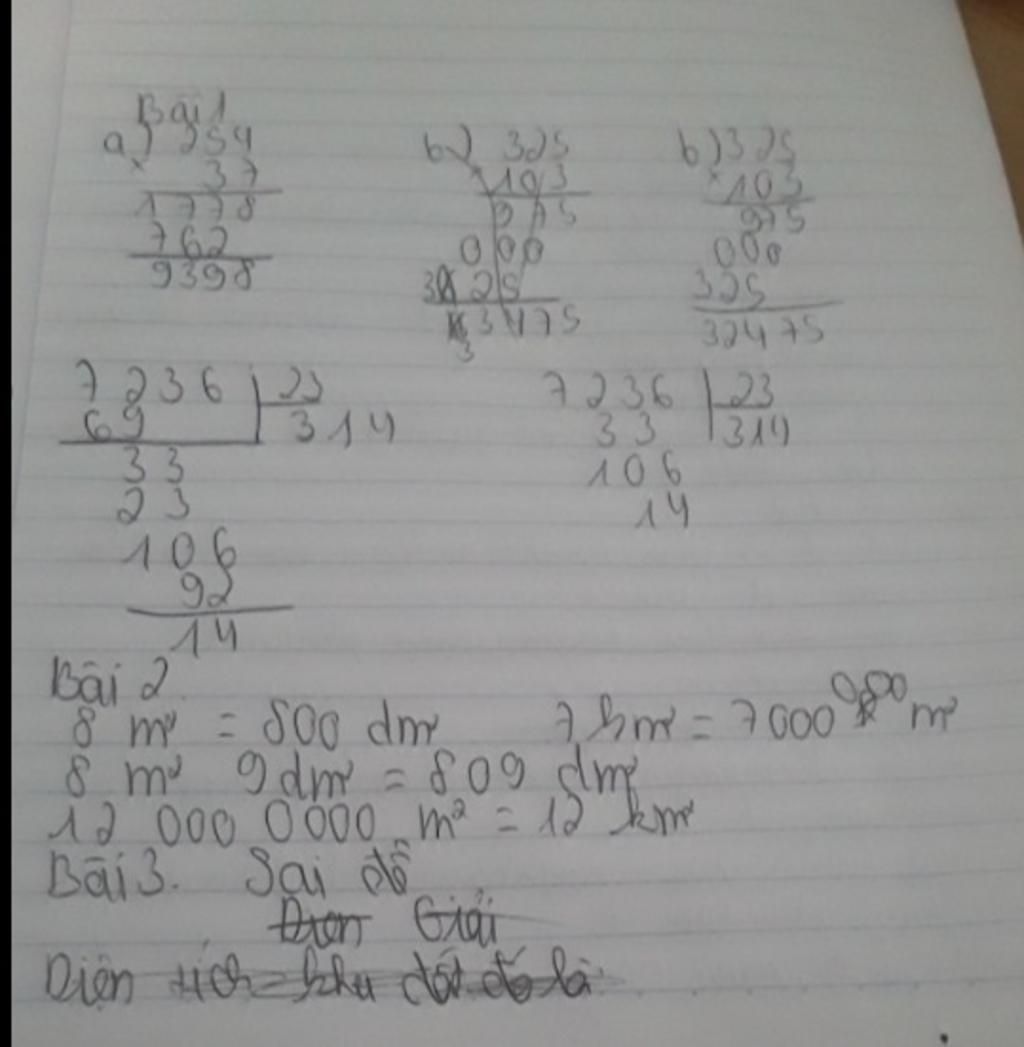 Bài 1
a) 254 b) 325 b) 325
x 37 x 103 x 103
1778 975 975
762 000 000
9398 325 325
33475 32475
7236 23 7236 23
69 314 33 314
33 106
23 14
106
92
14
Bài 2
8 m² = 800 dm² 7 km² = 7000 000 m²
8 m² 9 dm² = 809 dm²
12 000 0000 m² = 12 km²
Bài 3. Sai đồ
Giải
Diện tích khu đất đó là: